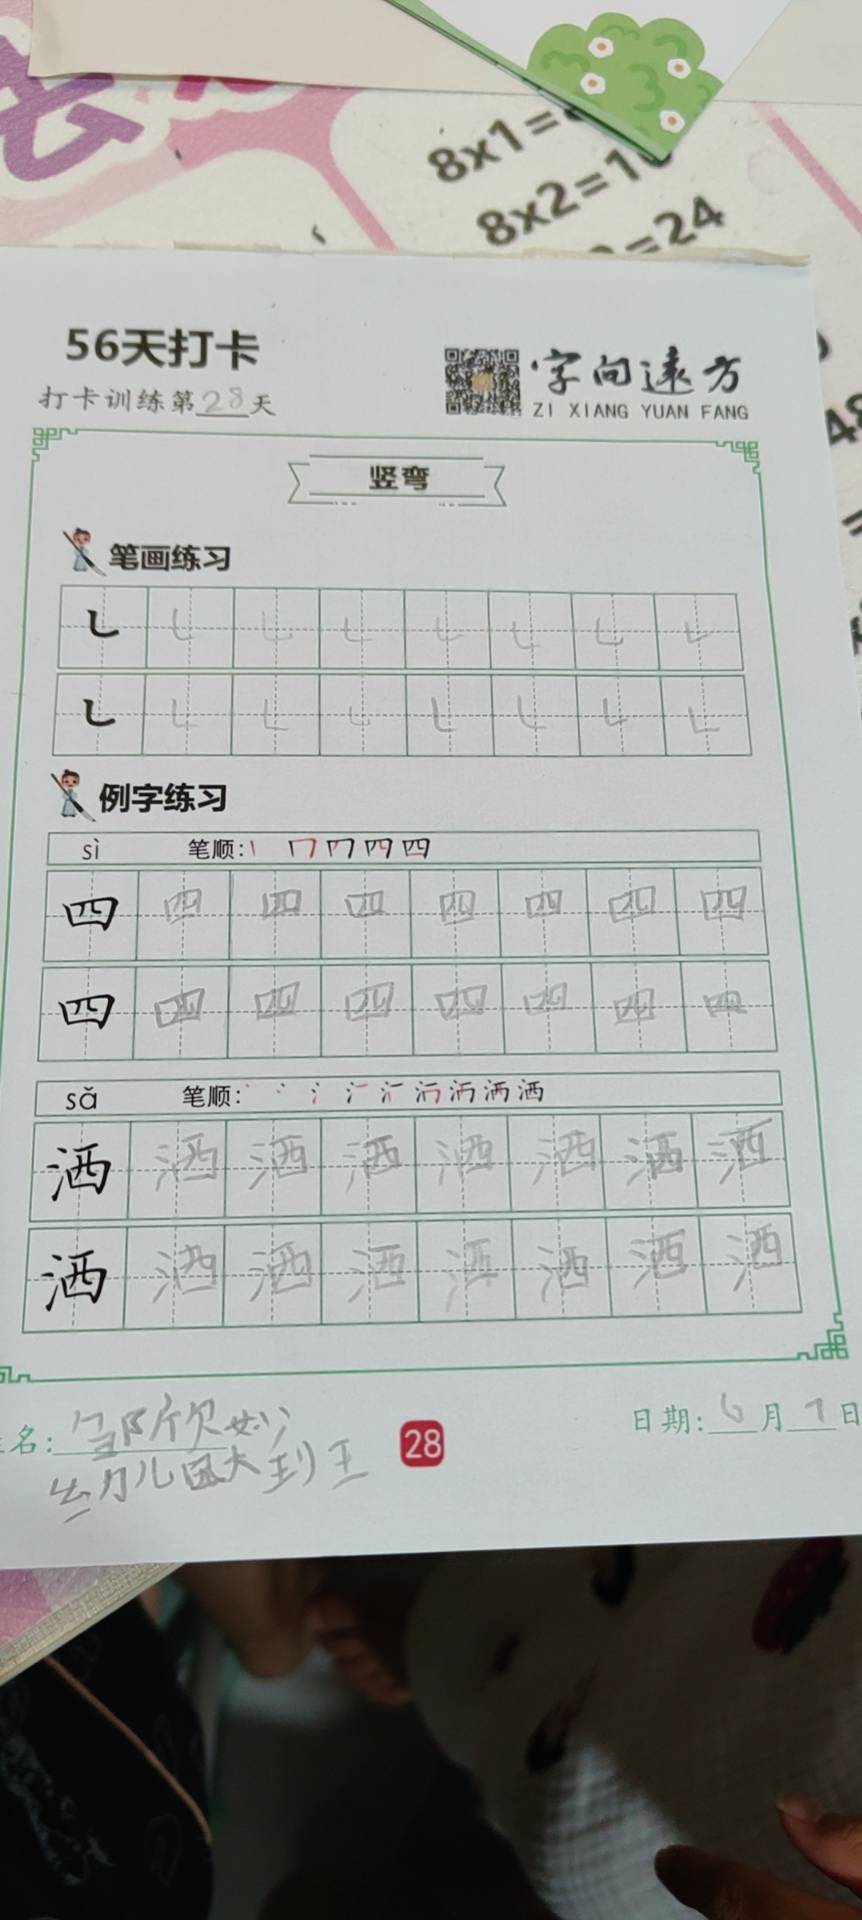 8x1=
8x2=1
=24
48
56天打卡
打卡训练第28天
字向远方
ZI XIANG YUAN FANG
竖弯
笔画练习
例字练习
sì 笔顺:丨 冂 𠕁 四 四
四 四 四 四 四 四 四 四
四 四 四 四 四 四 四 四
sǎ 笔顺:
洒 洒 洒 洒 洒 洒 洒 洒
洒 洒 洒 洒 洒 洒 洒 洒
名:邹欣妙
幼儿园大
28
日期:6月1日